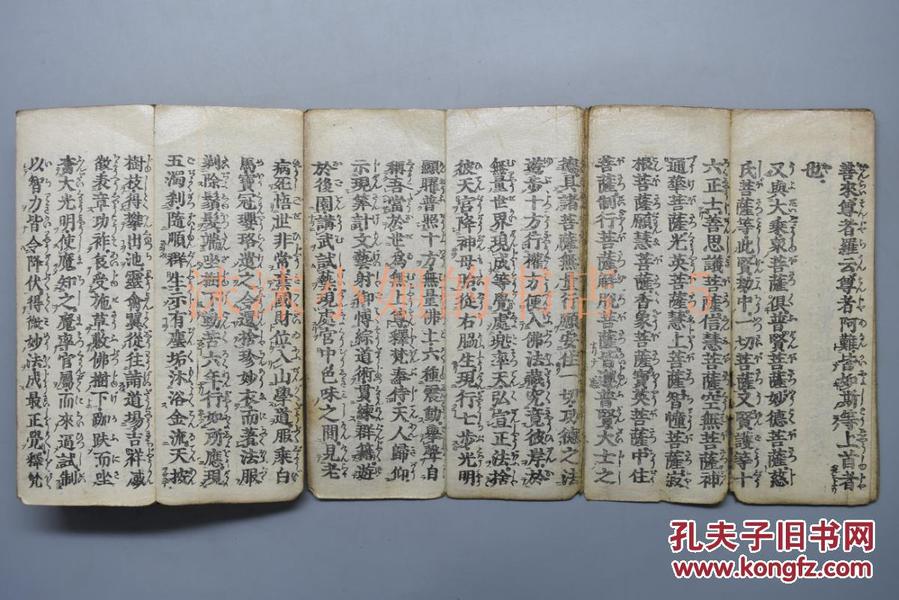 善來尊者羅云尊者阿難皆如斯等上首者
也
又與大乘衆菩薩俱普賢菩薩妙德菩薩慈
氏菩薩等此賢劫中一切菩薩又賢護等十
六正士善思議菩薩信慧菩薩空無菩薩神
通華菩薩光英菩薩慧上菩薩智幢菩薩寂
根菩薩願慧菩薩香象菩薩寶英菩薩中住
菩薩制行菩薩解脱菩薩皆遵普賢大士之
德具諸菩薩無量行願安住一切功德之法
遊步十方行權方便入佛法藏究竟彼岸於
無量世界現成等覺處兜率天弘宣正法捨
彼天宮降神母胎從右脇生現行七步光明
顯曜普照十方無量佛土六種震動舉聲自
稱吾當於世爲無上尊釋梵奉侍天人歸仰
示現算計文藝射御博綜道術貫練群籍遊
於後園講武試藝現處宮中色味之間見老
病死悟世非常棄國財位入山學道服乘白
馬寶冠瓔珞遣之令還捨珍妙衣而著法服
剃除鬚髮端坐樹下勤苦六年行如所應現
五濁刹隨順群生示有塵垢沐浴金流天按
樹枝得攀出池靈禽翼從往詣道場吉祥感
徵表章功祚哀受施草敷佛樹下跏趺而坐
奮大光明使魔知之魔率官屬而來逼試制
以智力皆令降伏得微妙法成最正覺釋梵
沫沫小姐的书店 5
孔夫子旧书网
www.kongfz.com